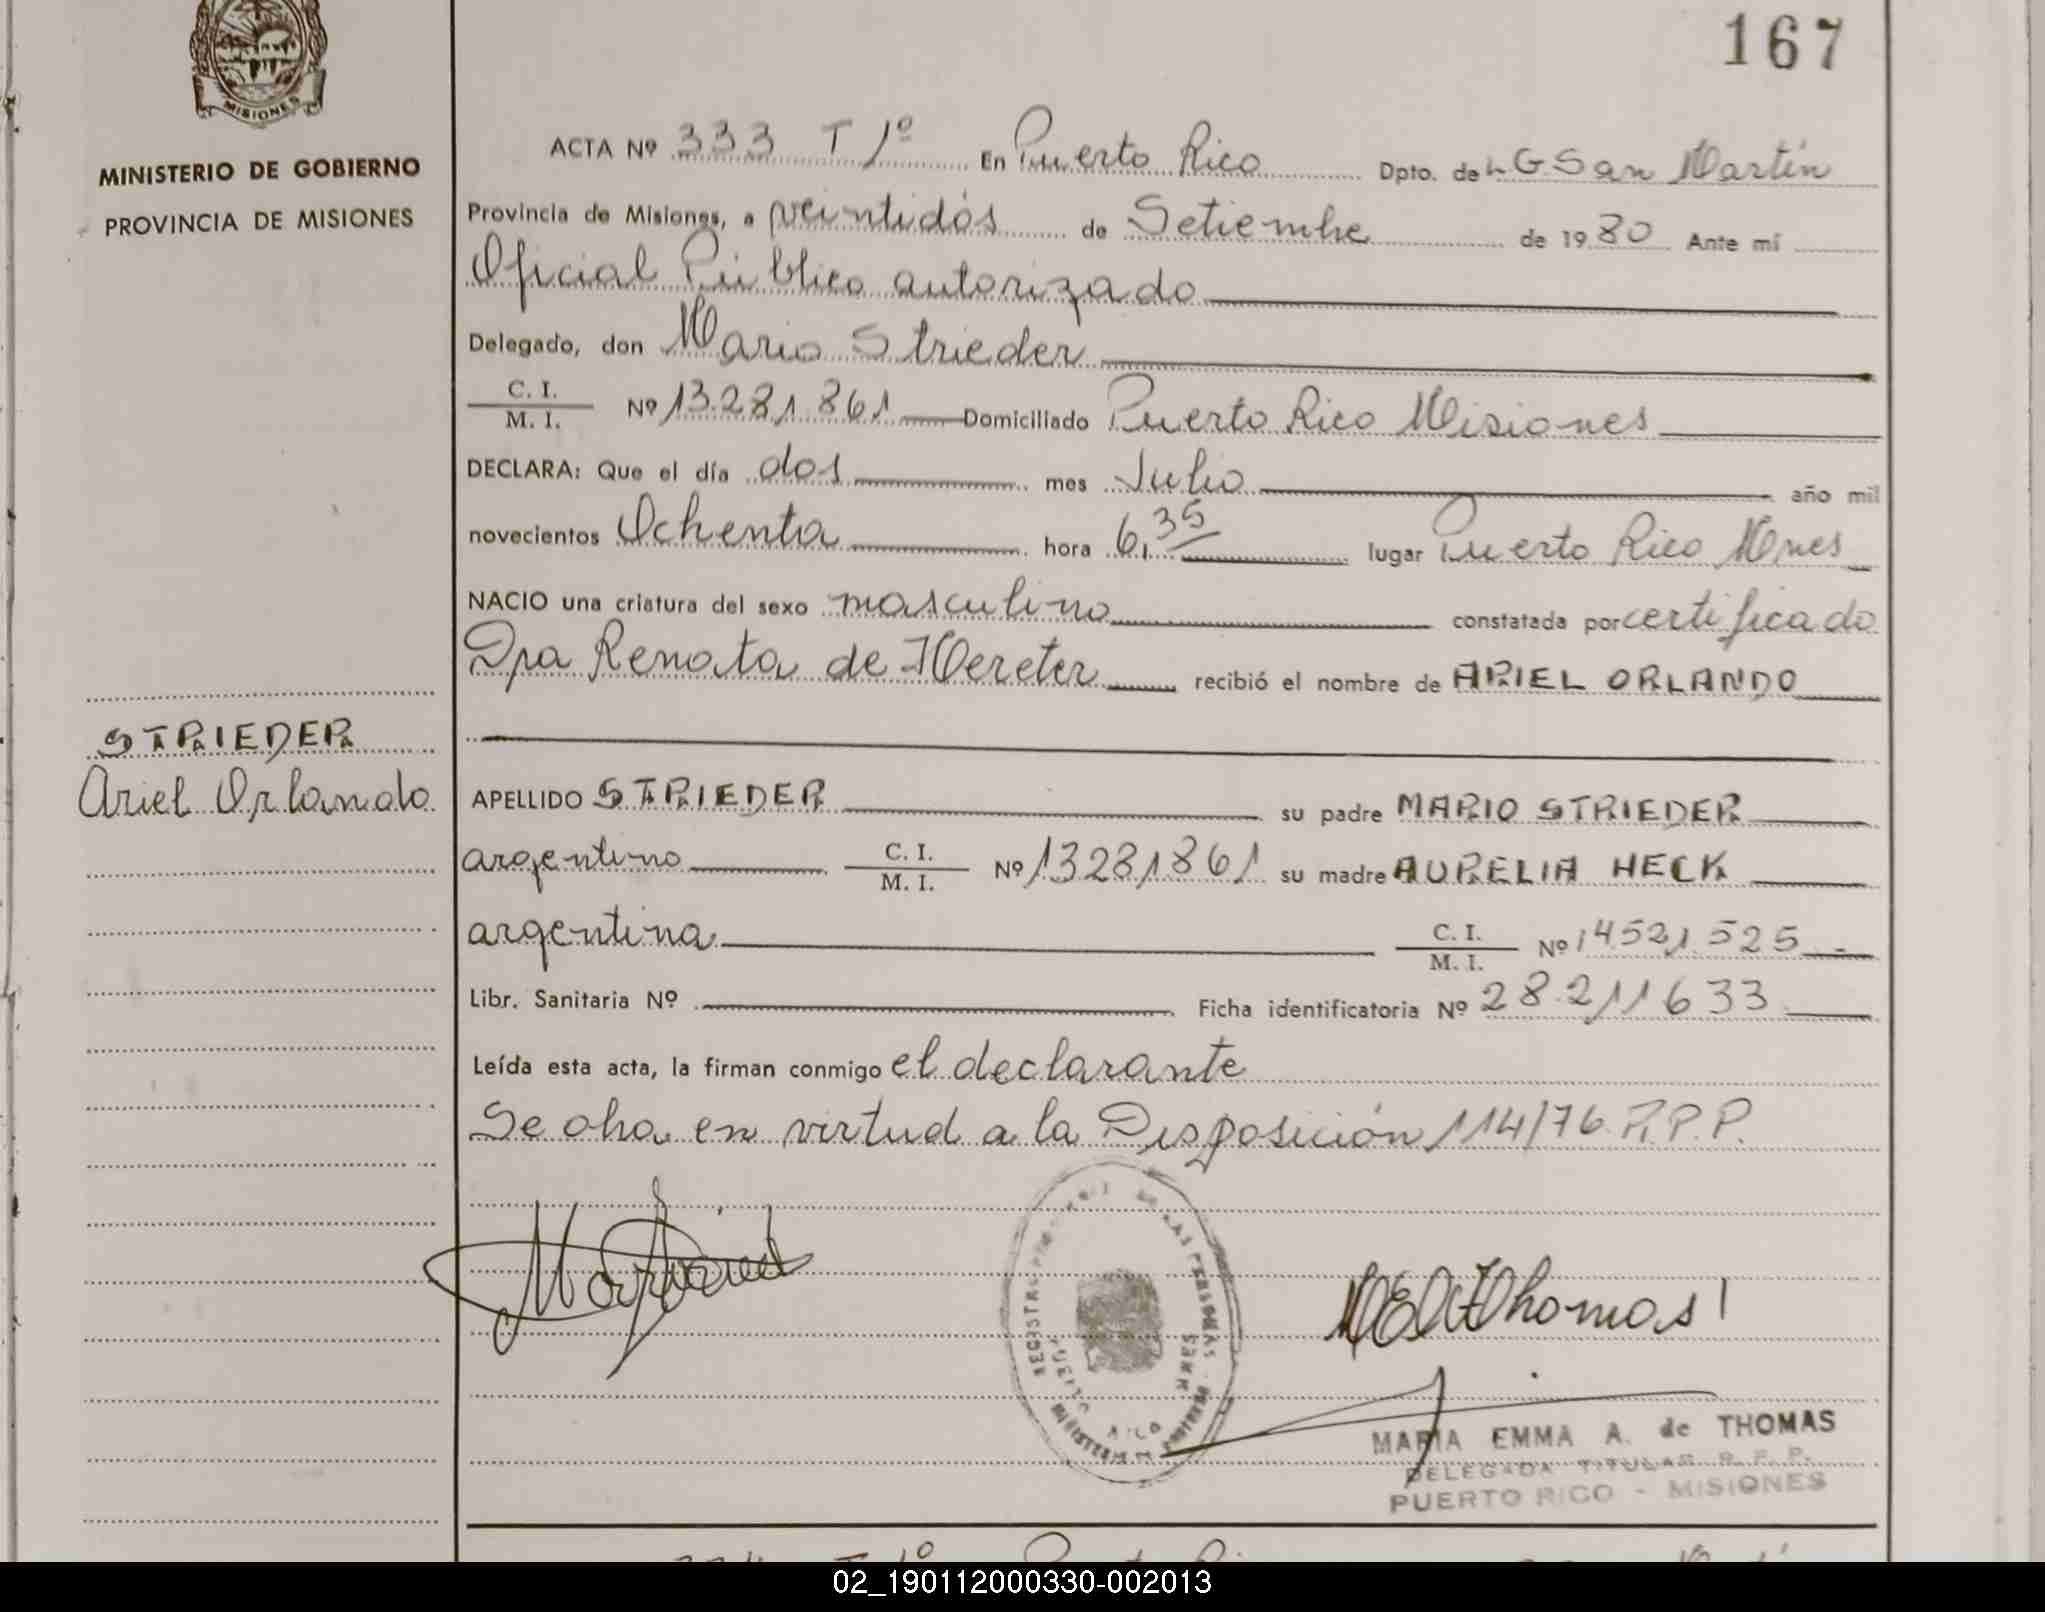 167
MISIONES
MINISTERIO DE GOBIERNO
PROVINCIA DE MISIONES
STRIEDER
Ariel Orlando
ACTA Nº 333 T 1º En Puerto Rico Dpto. de L G San Martín
Provincia de Misiones, a veintidós de Setiembre de 1980 Ante mí
Oficial Público autorizado
Delegado, don Mario Strieder
C. I. / M. I. Nº 13.281.861 Domiciliado Puerto Rico Misiones
DECLARA: Que el día dos mes Julio año mil
novecientos Ochenta hora 6,35 lugar Puerto Rico Mnes
NACIO una criatura del sexo masculino constatada por certificado
Dra Renata de Mereter recibió el nombre de ARIEL ORLANDO
APELLIDO STRIEDER su padre MARIO STRIEDER
argentino C. I. / M. I. Nº 13281861 su madre AURELIA HECK
argentina C. I. / M. I. Nº 14.521.525
Libr. Sanitaria Nº Ficha identificatoria Nº 28.211633
Leída esta acta, la firman conmigo el declarante
en virtud a la Disposición 114/76 P.P.P.
Thomas
MARIA EMMA A. de THOMAS
DELEGADA TITULAR R. P. P.
PUERTO RICO - MISIONES
02_190112000330-002013